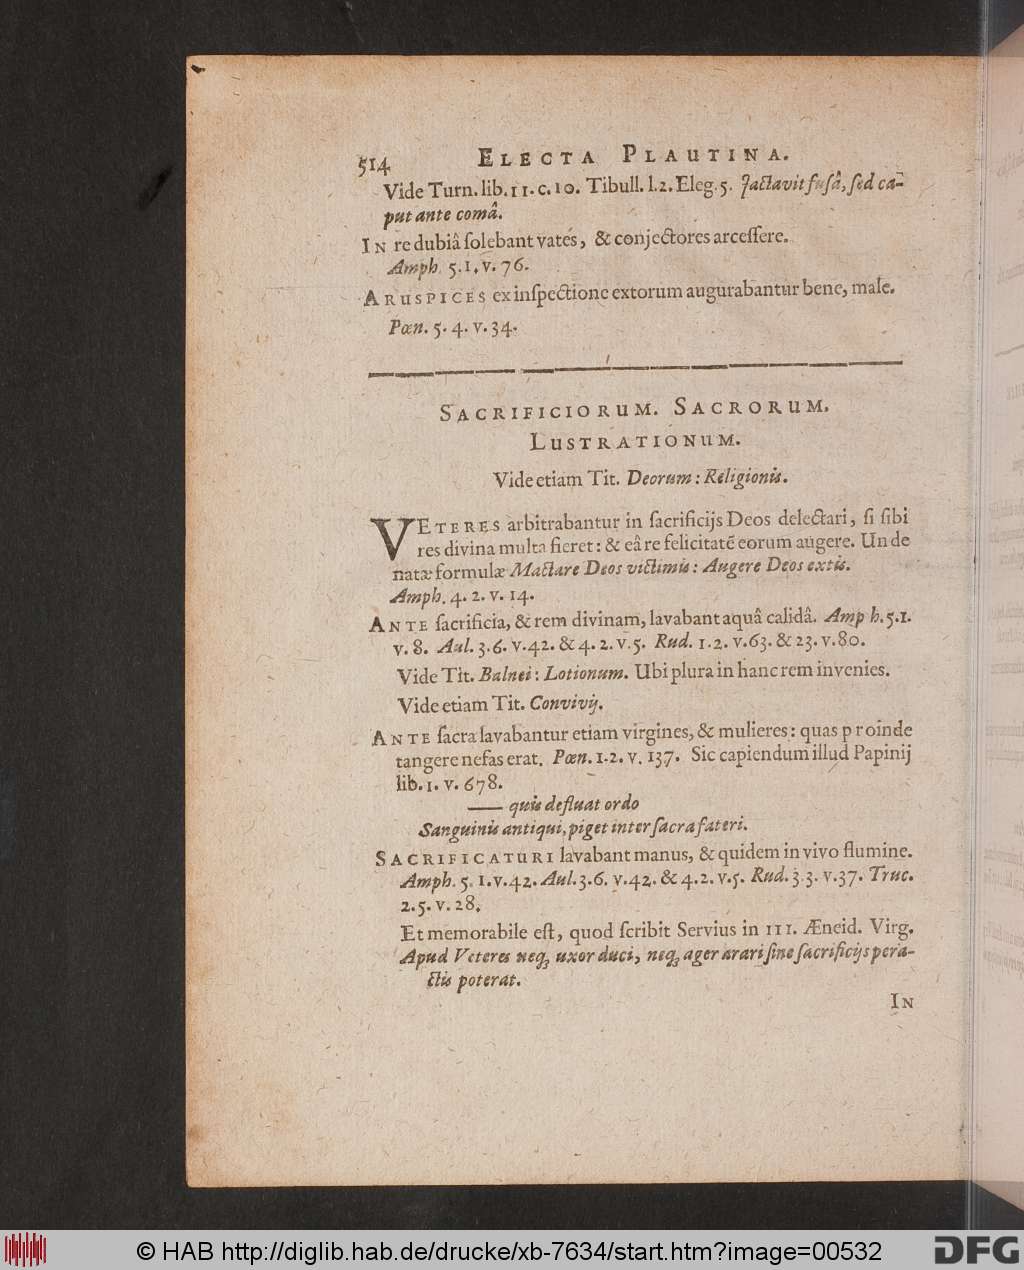 514 ELECTA PLAUTINA.
Vide Turn. lib. 11. c. 10. Tibull. l. 2. Eleg. 5. Jactavit fusâ, sed ca-
put ante comâ.
IN re dubiâ solebant vates, & conjectores arcessere.
Amph. 5. 1. v. 76.
ARUSPICES ex inspectione extorum augurabantur bene, male.
Pœn. 5. 4. v. 34.
SACRIFICIORUM. SACRORUM.
LUSTRATIONUM.
Vide etiam Tit. Deorum: Religionis.
VETERES arbitrabantur in sacrificijs Deos delectari, si sibi
res divina multa fieret: & eâ re felicitatē eorum augere. Un de
natæ formulæ Mactare Deos victimis: Augere Deos extis.
Amph. 4. 2. v. 14.
ANTE sacrificia, & rem divinam, lavabant aquâ calidâ. Amp h. 5. 1.
v. 8. Aul. 3. 6. v. 42. & 4. 2. v. 5. Rud. 1. 2. v. 63. & 23. v. 80.
Vide Tit. Balnei: Lotionum. Ubi plura in hanc rem invenies.
Vide etiam Tit. Convivij.
ANTE sacra lavabantur etiam virgines, & mulieres: quas p roinde
tangere nefas erat. Pœn. 1. 2. v. 137. Sic capiendum illud Papinij
lib. 1. v. 678.
—— quis defluat ordo
Sanguinis antiqui, piget inter sacra fateri.
SACRIFICATURI lavabant manus, & quidem in vivo flumine.
Amph. 5. 1. v. 42. Aul. 3. 6. v. 42. & 4. 2. v. 5. Rud. 3. 3. v. 37. Truc.
2. 5. v. 28.
Et memorabile est, quod scribit Servius in III. Æneid. Virg.
Apud Veteres neq; uxor duci, neq; ager arari sine sacrificijs pera-
ctis poterat.
IN
© HAB http://diglib.hab.de/drucke/xb-7634/start.htm?image=00532
DFG